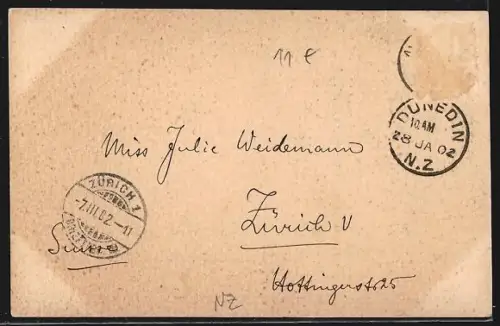 11 €
DUNEDIN
10 AM
28 JA 02
N.Z
Miss Julie Weidemann
ZÜRICH 1
-7.III.02.-11
Zürich V
Hottingerstr 25
NZ